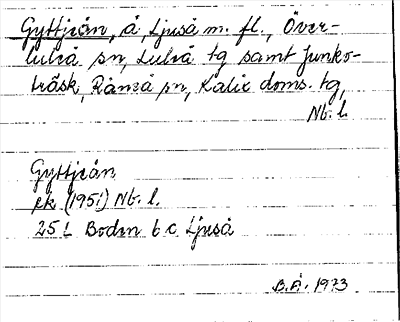 Gyttjeån, å, Ljuså m. fl., Över-
luleå sn, Luleå tg samt Junko-
träsk, Råneå sn, Kalix doms. tg,
Nb. l.
Gyttjeån
ek (1951) Nb. l.
25 L Boden 6 c Ljuså
B.Å. 1973